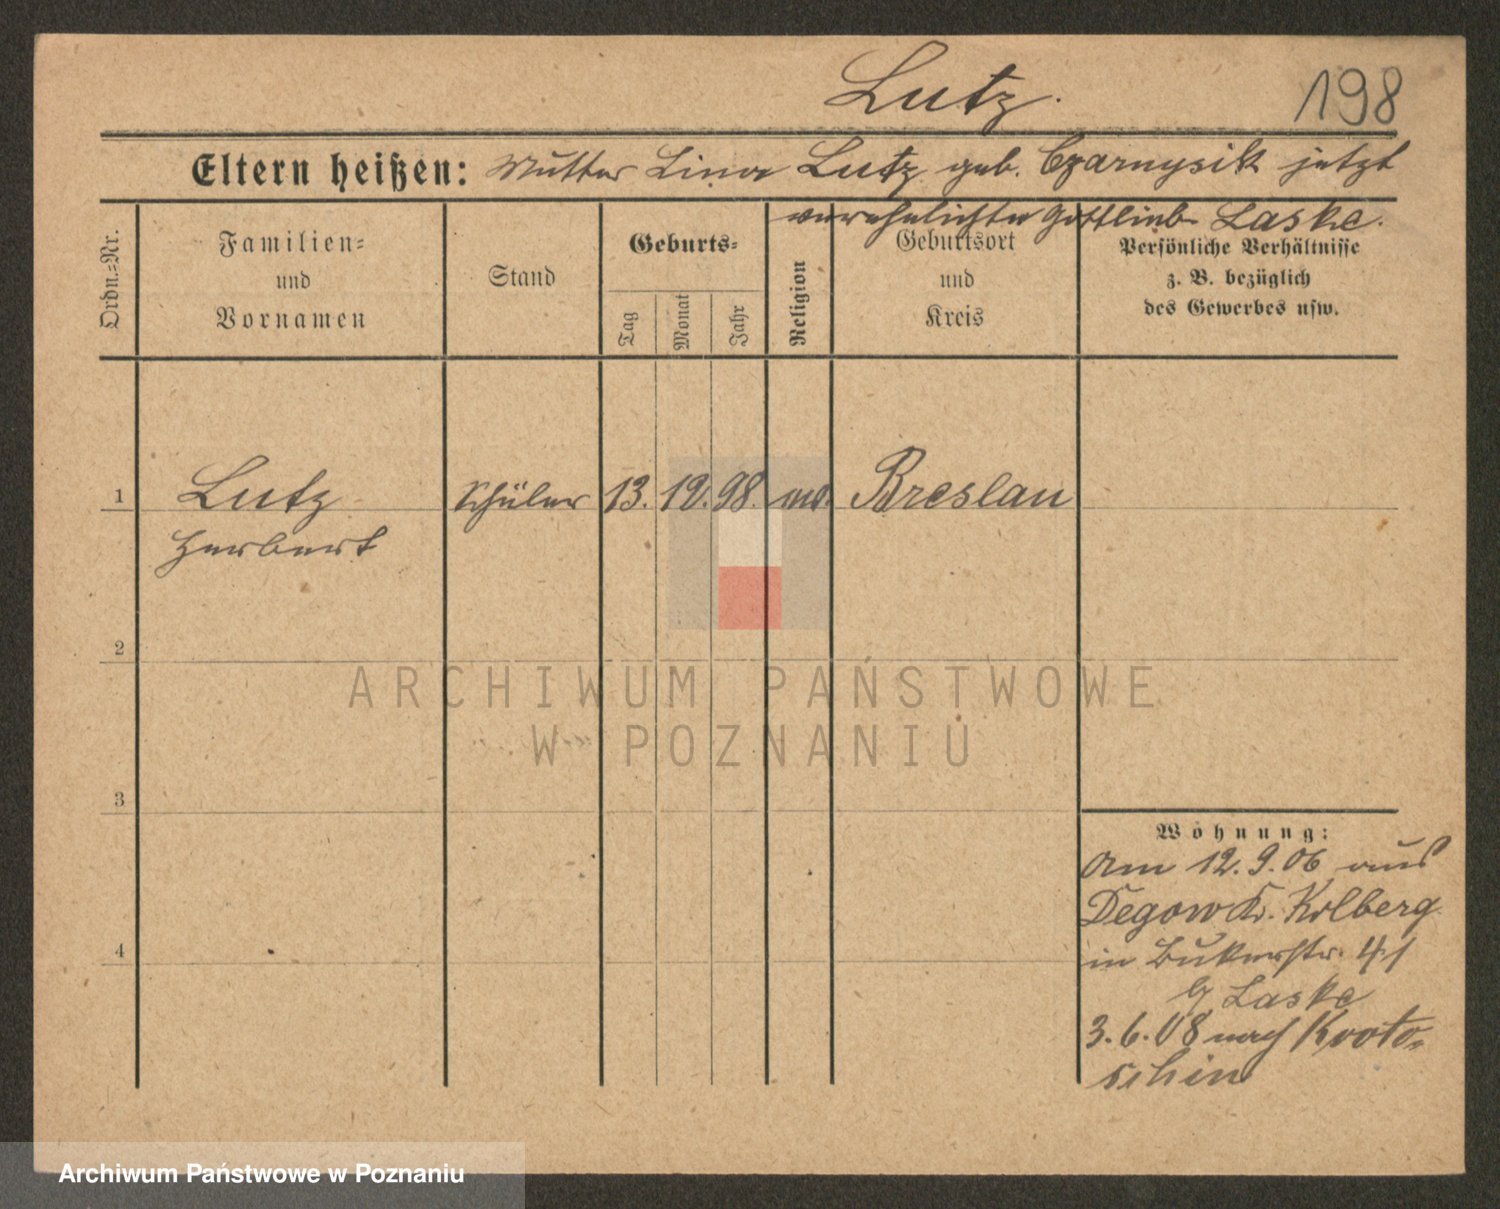 Lutz.
198
Eltern heißen: Mutter Lina Lutz geb. Czarnysik jetzt
verehelichte Gottlieb Laske.
Ordn.=Nr.
Familien=
und
Vornamen
Stand
Geburts=
Tag
Monat
Jahr
Religion
Geburtsort
und
Kreis
Persönliche Verhältnisse
z. B. bezüglich
des Gewerbes usw.
1 Lutz Schüler 13. 12. 98. ev. Breslau
Herbert
2
ARCHIWUM PAŃSTWOWE
W POZNANIU
3
Wohnung:
Am 12.9.06 aus
Degow Kr. Kolberg
in Bukerstr. 41
b/ Laske
3.6.08 nach Kroto-
schin
4
Archiwum Państwowe w Poznaniu